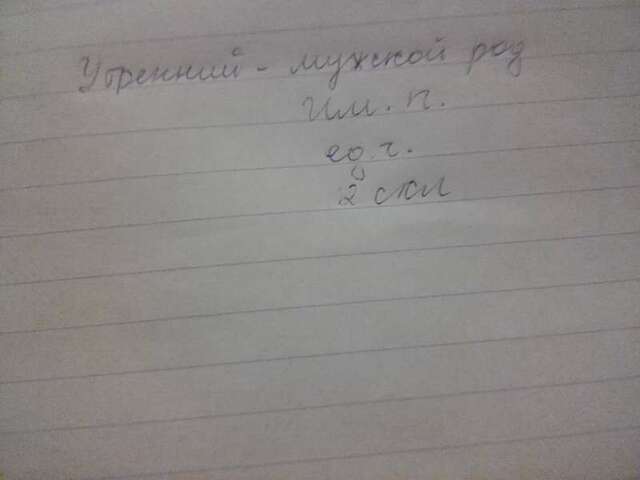 Утренний - мужской род
Им. п.
ед. ч.
2 скл